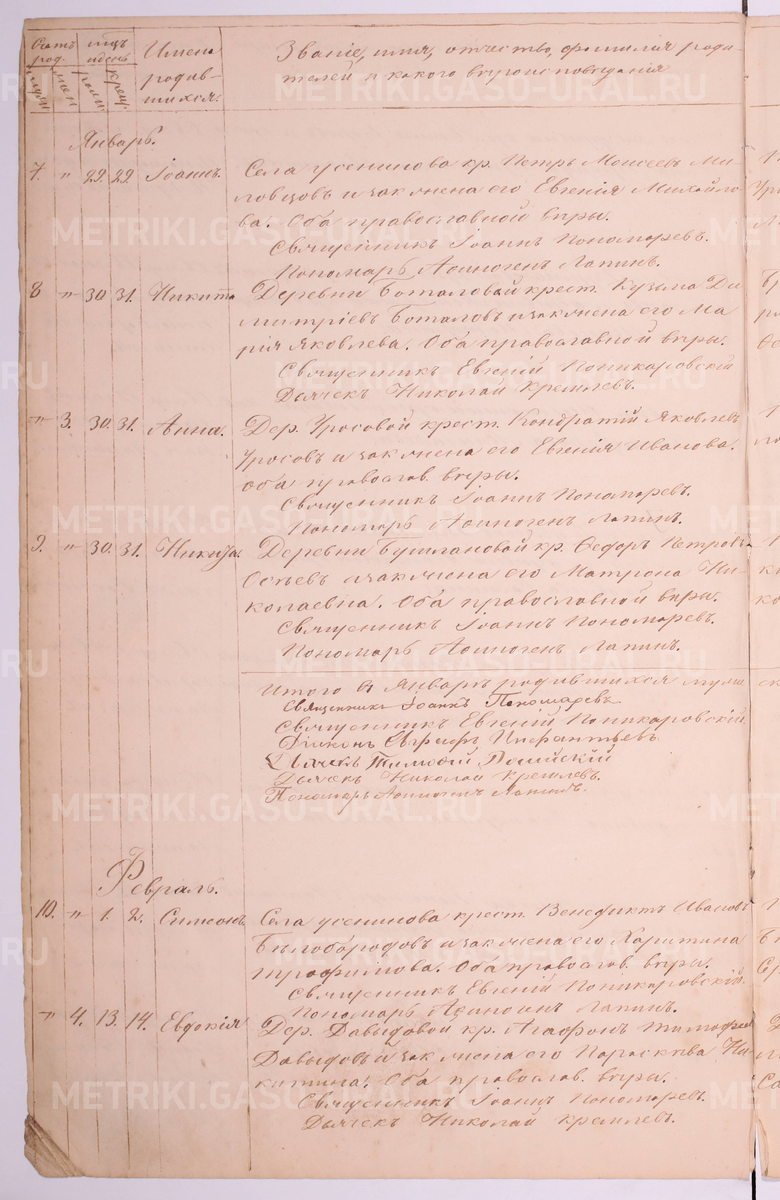 Счетъ род.
муж. жен.
мѣсяцъ и день
рожд. крещ.
Имена родив-
шихся.
Званіе, имя, отчество, фамилія роди-
телей, и какого вѣроисповѣданія
Январь.
7. " 29 29 Іоаннъ. Села Усенинова кр. Петръ Моисеевъ
и зак. жена его Евгенія Михайло-
ва. Оба православной вѣры.
Священникъ Іоаннъ Пономаревъ.
Пономарь Аѳиногенъ Лапинъ.
8 " 30 31. Никита Деревни Боталовой крест. Кузьма Ди-
митріевъ Боталовъ и зак. жена его Ма-
рія Яковлева. Оба православной вѣры.
Священникъ Евгеній Поникаровскій
Дьячекъ Николай Кремлевъ.
" 3. 30. 31. Анна. Дер. Уросовой крест. Кондратій Яковлевъ
Уросовъ и зак. жена его Евгенія Иванова.
оба правослов. вѣры.
Священникъ Іоаннъ Пономаревъ.
Пономарь Аѳиногенъ Лапинъ.
9. " 30. 31. Никита. Деревни Бушлановой кр. Ѳедоръ Петровъ
и зак. жена его Матрона Ни-
колаевна. Оба православной вѣры.
Священникъ Іоаннъ Пономаревъ.
Пономарь Аѳиногенъ Лапинъ.
Итого въ Январѣ родившихся муж
Священникъ Іоаннъ Пономаревъ
Священникъ Евгеній Поникаровскій
Діаконъ
Дьячекъ Тимоѳей
Дьячекъ Николай Кремлевъ.
Пономарь Аѳиногенъ Лапинъ.
Февраль.
10. " 1. 2. Симеонъ. Села Усенинова крест. Венедиктъ Ивановъ
Бѣлобородовъ и зак. жена его Харитина
Трофимова. Оба правослов. вѣры.
Священникъ Евгеній Поникаровскій.
Пономарь Аѳиногенъ Лапинъ.
" 4. 13. 14. Евдокія Дер. Давыдовой кр. Агафонъ Тимофеевъ
Давыдовъ и зак. жена его Параскева Ни-
китина. Оба правослов. вѣры.
Священникъ Іоаннъ Пономаревъ.
Дьячекъ Николай Кремлевъ.
METRIKI.GASO-URAL.RU